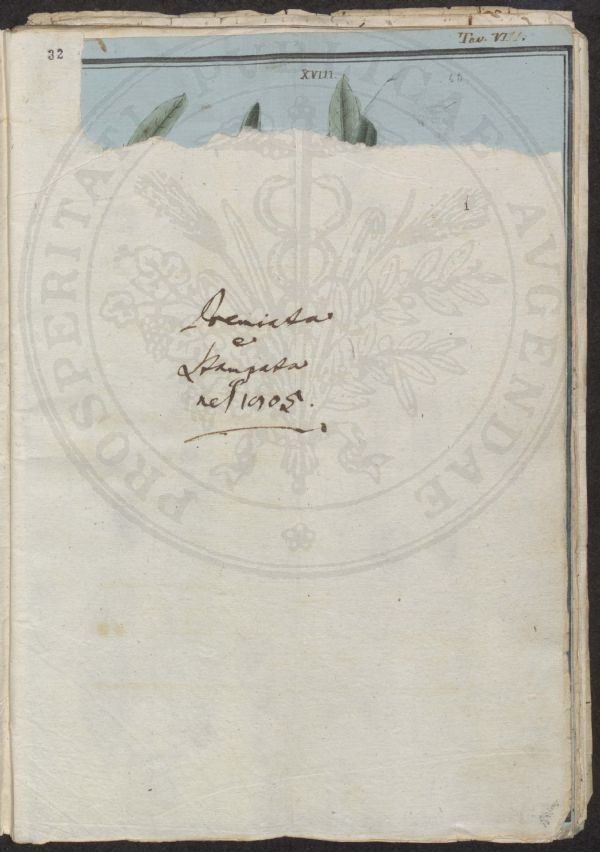 32
Tav. VIII.
XVIII.
1
Premiata
e
Stampata
nel 1805.
PROSPERITATI PUBLICAE AUGENDAE